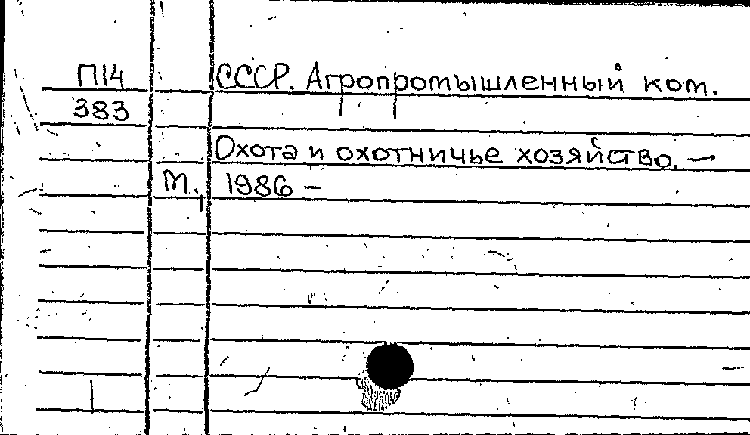 П14 СССР. Агропромышленный ком.
383
Охота и охотничье хозяйство. —
М., 1986 —